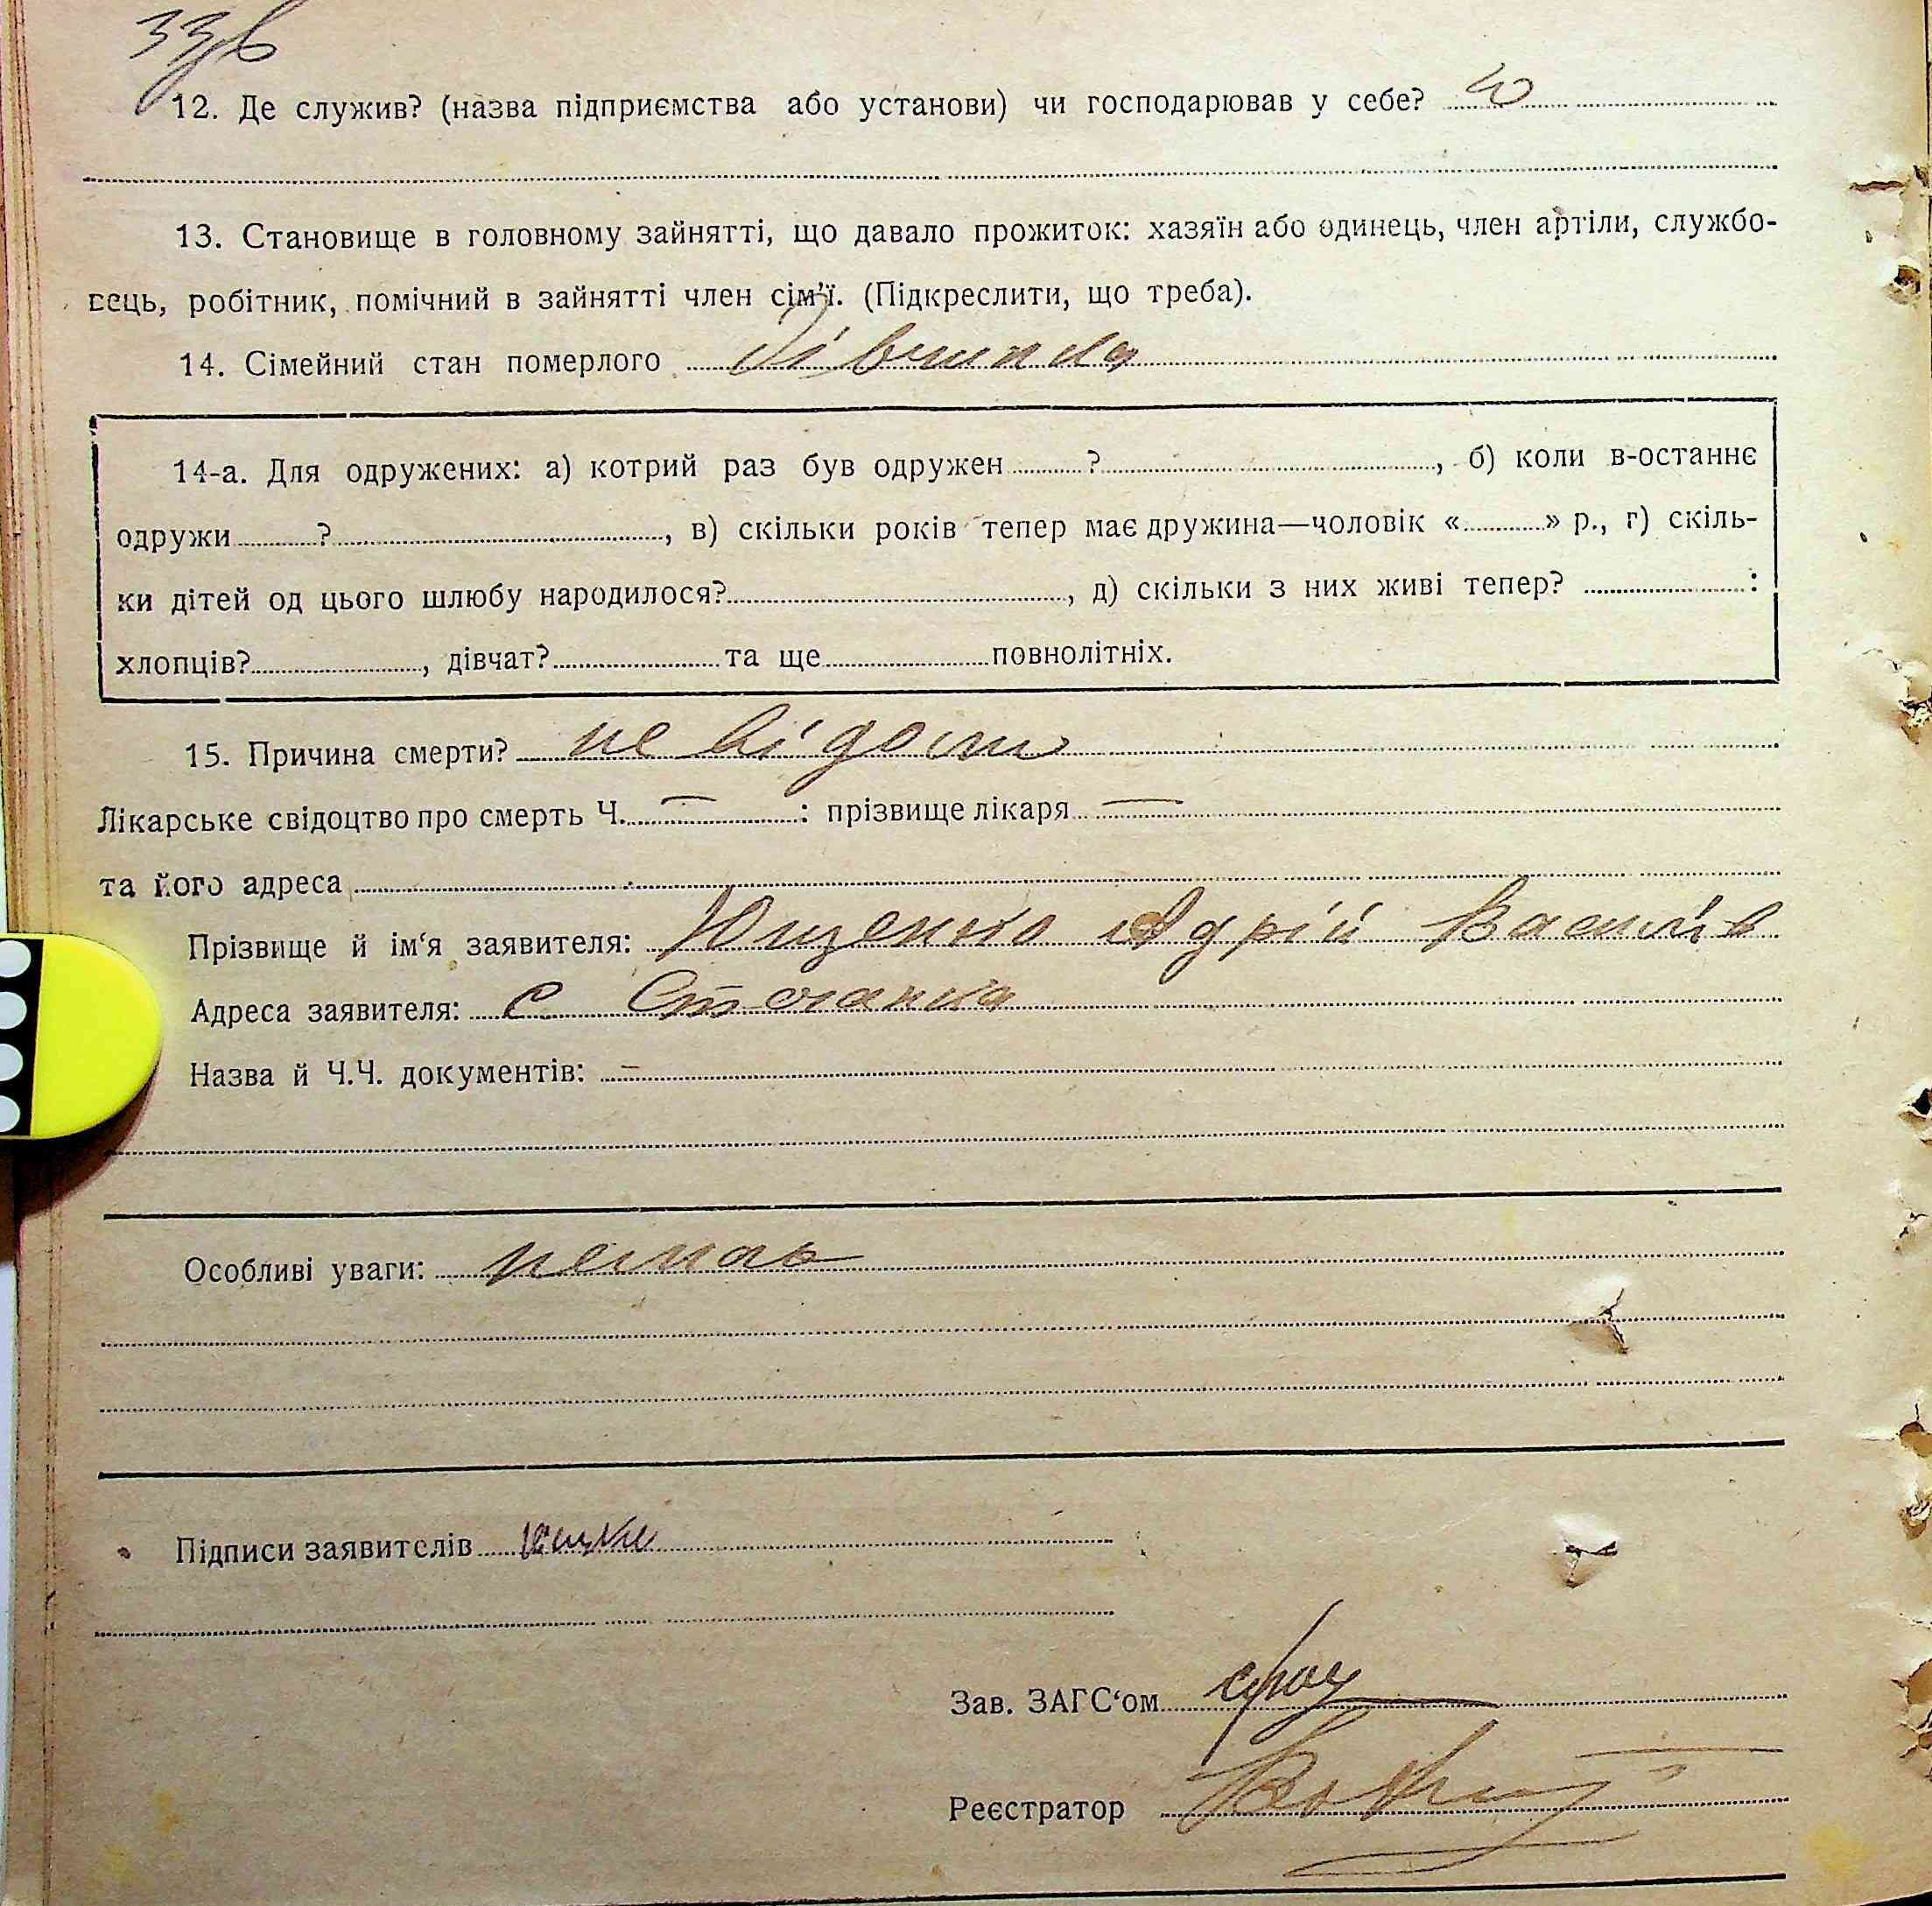 33зв
12. Де служив? (назва підприємства або установи) чи господарював у себе?
13. Становище в головному зайнятті, що давало прожиток: хазяїн або одинець, член артіли, службо-
вець, робітник, помічний в зайнятті член сім'ї. (Підкреслити, що треба).
14. Сімейний стан померлого дівчинка
14-а. Для одружених: а) котрий раз був одружен ? , б) коли в-останнє
одружи ? , в) скільки років тепер має дружина—чоловік « » р., г) скіль-
ки дітей од цього шлюбу народилося? , д) скільки з них живі тепер? :
хлопців? , дівчат? та ще повнолітніх.
15. Причина смерти? не відоми
Лікарське свідоцтво про смерть Ч. — : прізвище лікаря —
та його адреса
Прізвище й ім'я заявителя: Ющенко Адрій Васил'ів
Адреса заявителя: с.
Назва й Ч.Ч. документів: —
Особливі уваги: немає
Підписи заявителів
Зав. ЗАГС'ом
Реєстратор